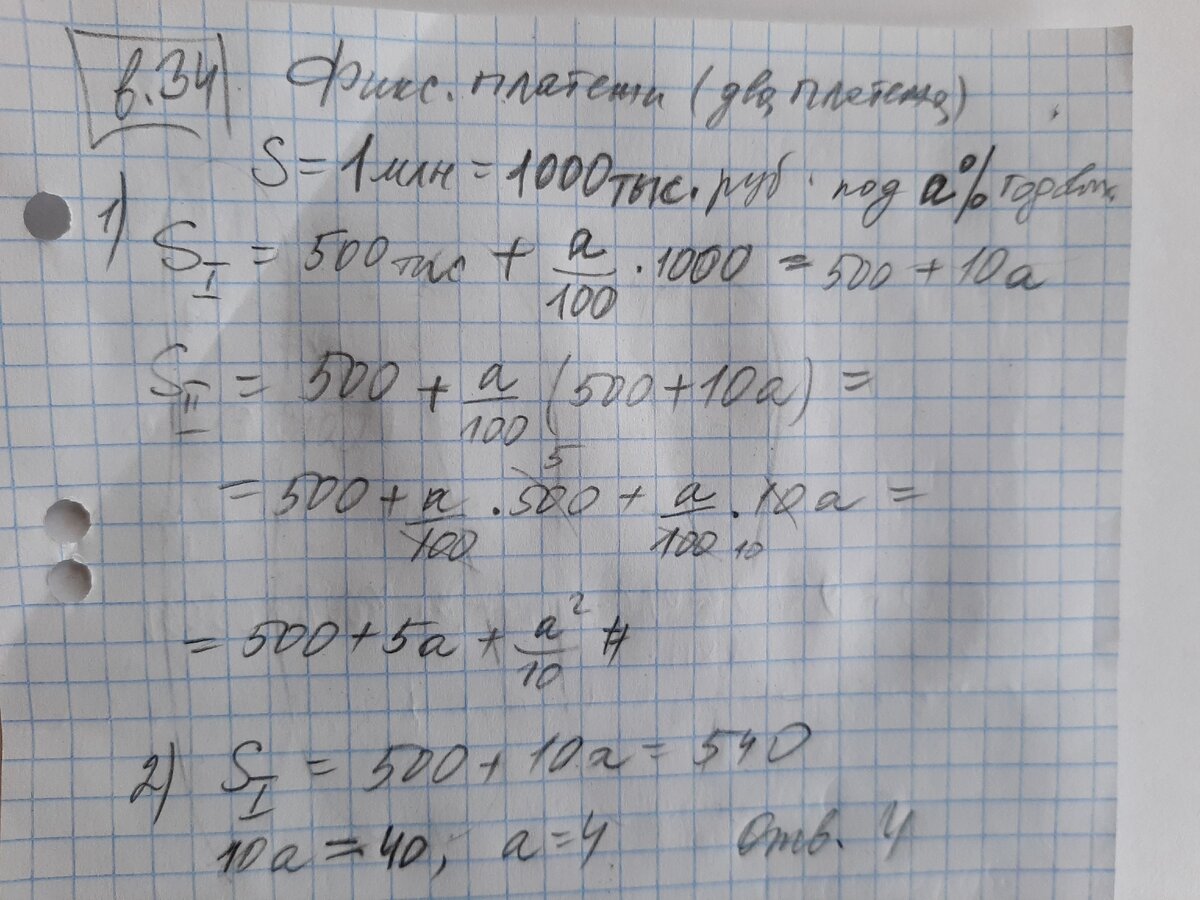 в.34 Фикс. платежи (два платежа)
S = 1 млн = 1000 тыс. руб. под a% годовых
1) S_I = 500 тыс + a/100 · 1000 = 500 + 10a
S_II = 500 + a/100 (500 + 10a) =
= 500 + a/100 · 500 5 + a/100 10 · 10a =
= 500 + 5a + a²/10 //
2) S_I = 500 + 10a = 540
10a = 40; a = 4 Отв. 4